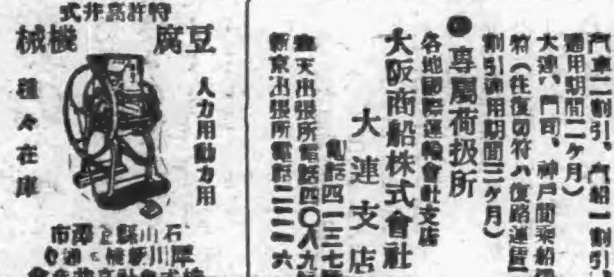 汽車二割引、汽船一割引
通用期間二ヶ月）
大連、門司、神戸間乗船
符（往復切符八復路運賃
割引通用期間三ヶ月）
専屬荷扱所
各地國際運輸會社支店
大阪商船株式會社
大連支店
電話四一三七
奉天出張所電話四〇八九
新京出張所電話二二一六
特許高井式
豆腐機械
人力用動力用
種々在庫
石川縣金澤市